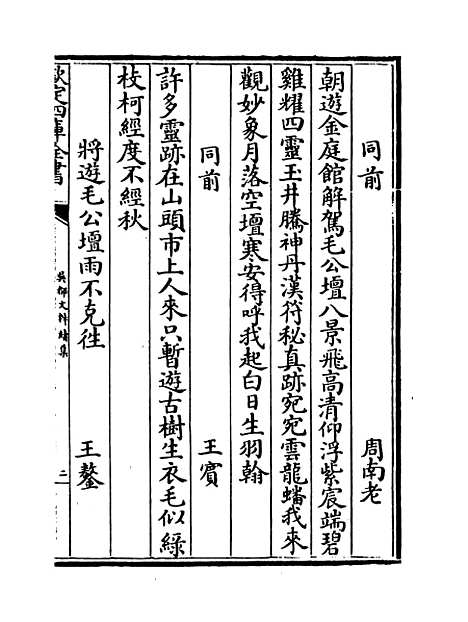 同前 周南老
朝遊金庭館解駕毛公壇八景飛高清仰浮紫宸端碧
雞耀四靈玉井騰神丹漢符秘真跡宛宛雲龍蟠我來
觀妙象月落空壇寒安得呼我起白日生羽翰
同前 王賓
許多靈跡在山頭市上人來只暫遊古樹生衣毛似綠
枝柯經度不經秋
將遊毛公壇雨不克徃 王鏊
欽定四庫全書
吳都文粹續集
二